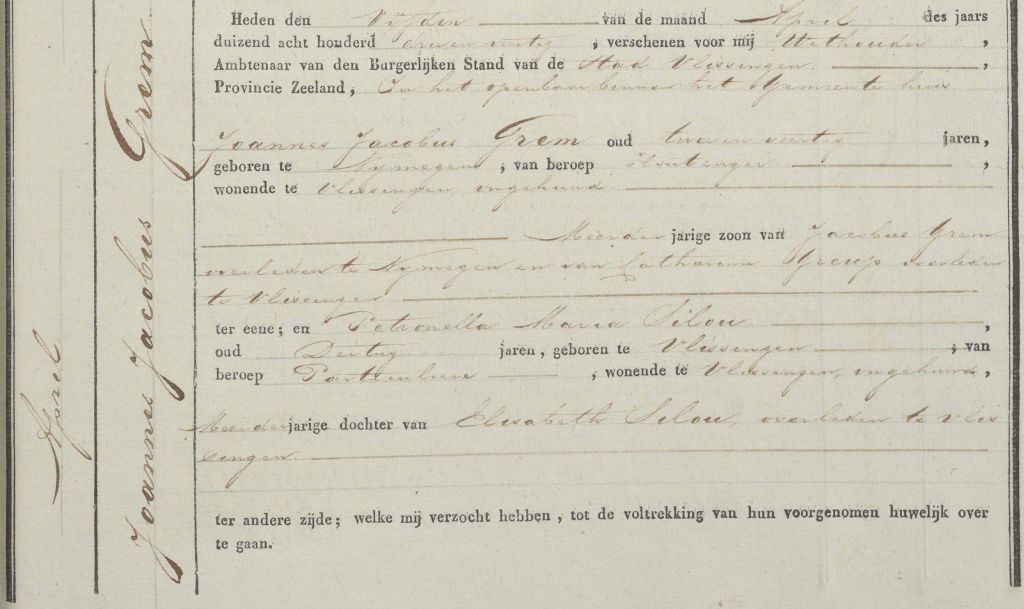 Heden den Vijfden van de maand April des jaars
duizend acht honderd drie en veertig, verschenen voor mij Wethouder,
Ambtenaar van den Burgerlijken Stand van de Stad Vlissingen,
Provincie Zeeland, In het openbaar binnen het Gemeente huis
Joannes Jacobus Grem oud twee en veertig jaren,
geboren te Nymegen, van beroep Houtzager,
wonende te Vlissingen, ongehuwd
Meerder jarige zoon van Jacobus Grem
overleden te Nymegen en van Catharina overleden
te Vlissingen
ter eene; en Petronella Maria Silou,
oud Dertig jaren, geboren te Vlissingen, van
beroep Particuliere, wonende te Vlissingen, ongehuwd,
Meerderjarige dochter van Elisabeth Silou, overleden te Vlis
singen
ter andere zijde; welke mij verzocht hebben, tot de voltrekking van hun voorgenomen huwelijk over
te gaan.
April
Joannes Jacobus Grem